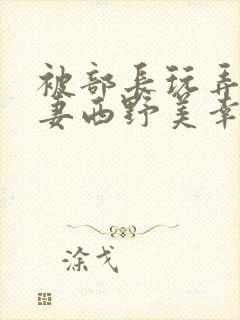 被部长玩弄
妻西野美幸
涂戈